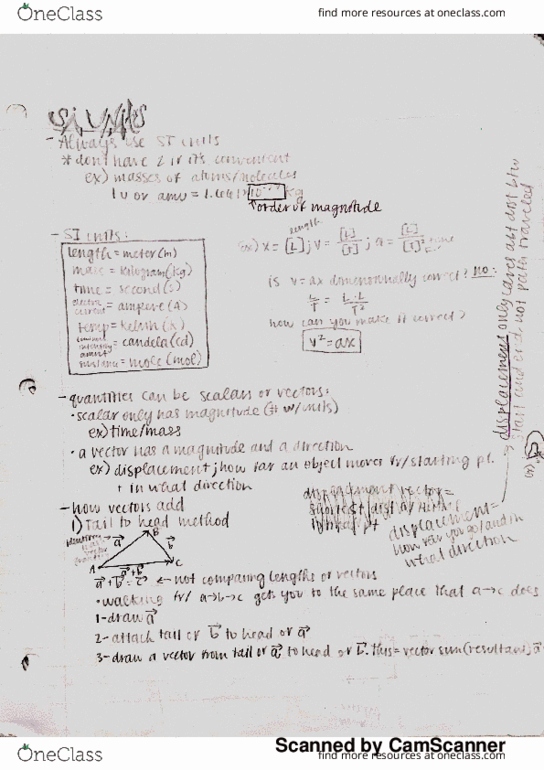 OneClass
find more resources at oneclass.com
SI Units
- Always use SI units
* don't have 2 if it's convenient
ex) masses of atoms/molecules
1u or amu = 1.661×10 kg
↑order of magnitude
- SI units:
length = meter (m)
mass = kilogram (kg)
time = second (s)
electric current = ampere (A)
temp = kelvin (K)
luminous intensity = candela (cd)
amount substance = mole (mol)
length
ex) x = [L] ; v = [L]/[T] ; a = [L]/[T]² time
is v = ax dimensionally correct? no:
L/T = L·L/T²
how can you make it correct?
v² = ax
- quantities can be scalars or vectors:
• scalar only has magnitude (# w/units)
ex) time/mass
• a vector has a magnitude and a direction
ex) displacement; how far an object moves fr/starting pt.
+ in what direction
→ displacement only cares abt dist btw
start and end, not path traveled
(ex)
displacement vector =
shortest dist a/
displacement =
how far you go/and in
what direction
- how vectors add
1) Tail to head method
a b B
A a+b C
a + b = c ← not comparing lengths of vectors
• walking fr/ a→b→c gets you to the same place that a→c does
1- draw a
2- attach tail of b to head of a
3- draw a vector from tail of a to head of b. this = vector sum (resultant)
Scanned by CamScanner
OneClass
find more resources at oneclass.com